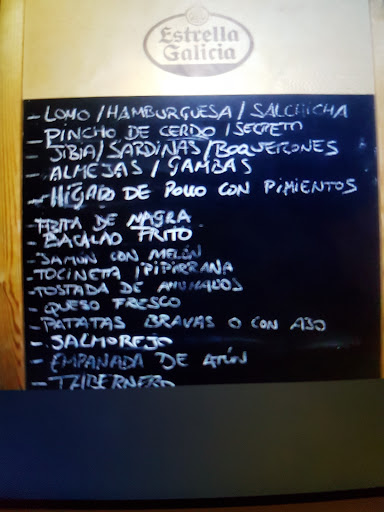 Estrella
Galicia
- LOMO / HAMBURGUESA / SALCHICHA
- PINCHO DE CERDO / SECRETO
- JIBIA / SARDINAS / BOQUERONES
- ALMEJAS / GAMBAS
- HÍGADO DE POLLO CON PIMIENTOS
- DE MAGRA
- BACALAO FRITO
- JAMON CON MELÓN
- TOCINETA / PIPIRRANA
- TOSTADA DE AHUMADOS
- QUESO FRESCO
- PATATAS BRAVAS O CON AJO
- SALMOREJO
- EMPANADA DE ATÚN
- TABERNERO